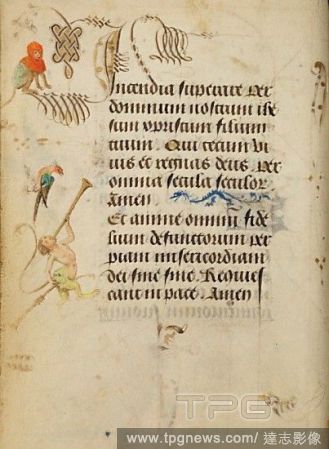 Incendia superare per
dominum nostrum ihe
sum xpristum filium
tuum. Qui tecum vi
uis et regnas deus per
omnia secula seculor
Amen
Et anime omnium fide
lium defunctorum per
piam misericordiam
dei sine fine Requies
cant in pace Amen
TPG
www.tpgnews.com/ 達志影像